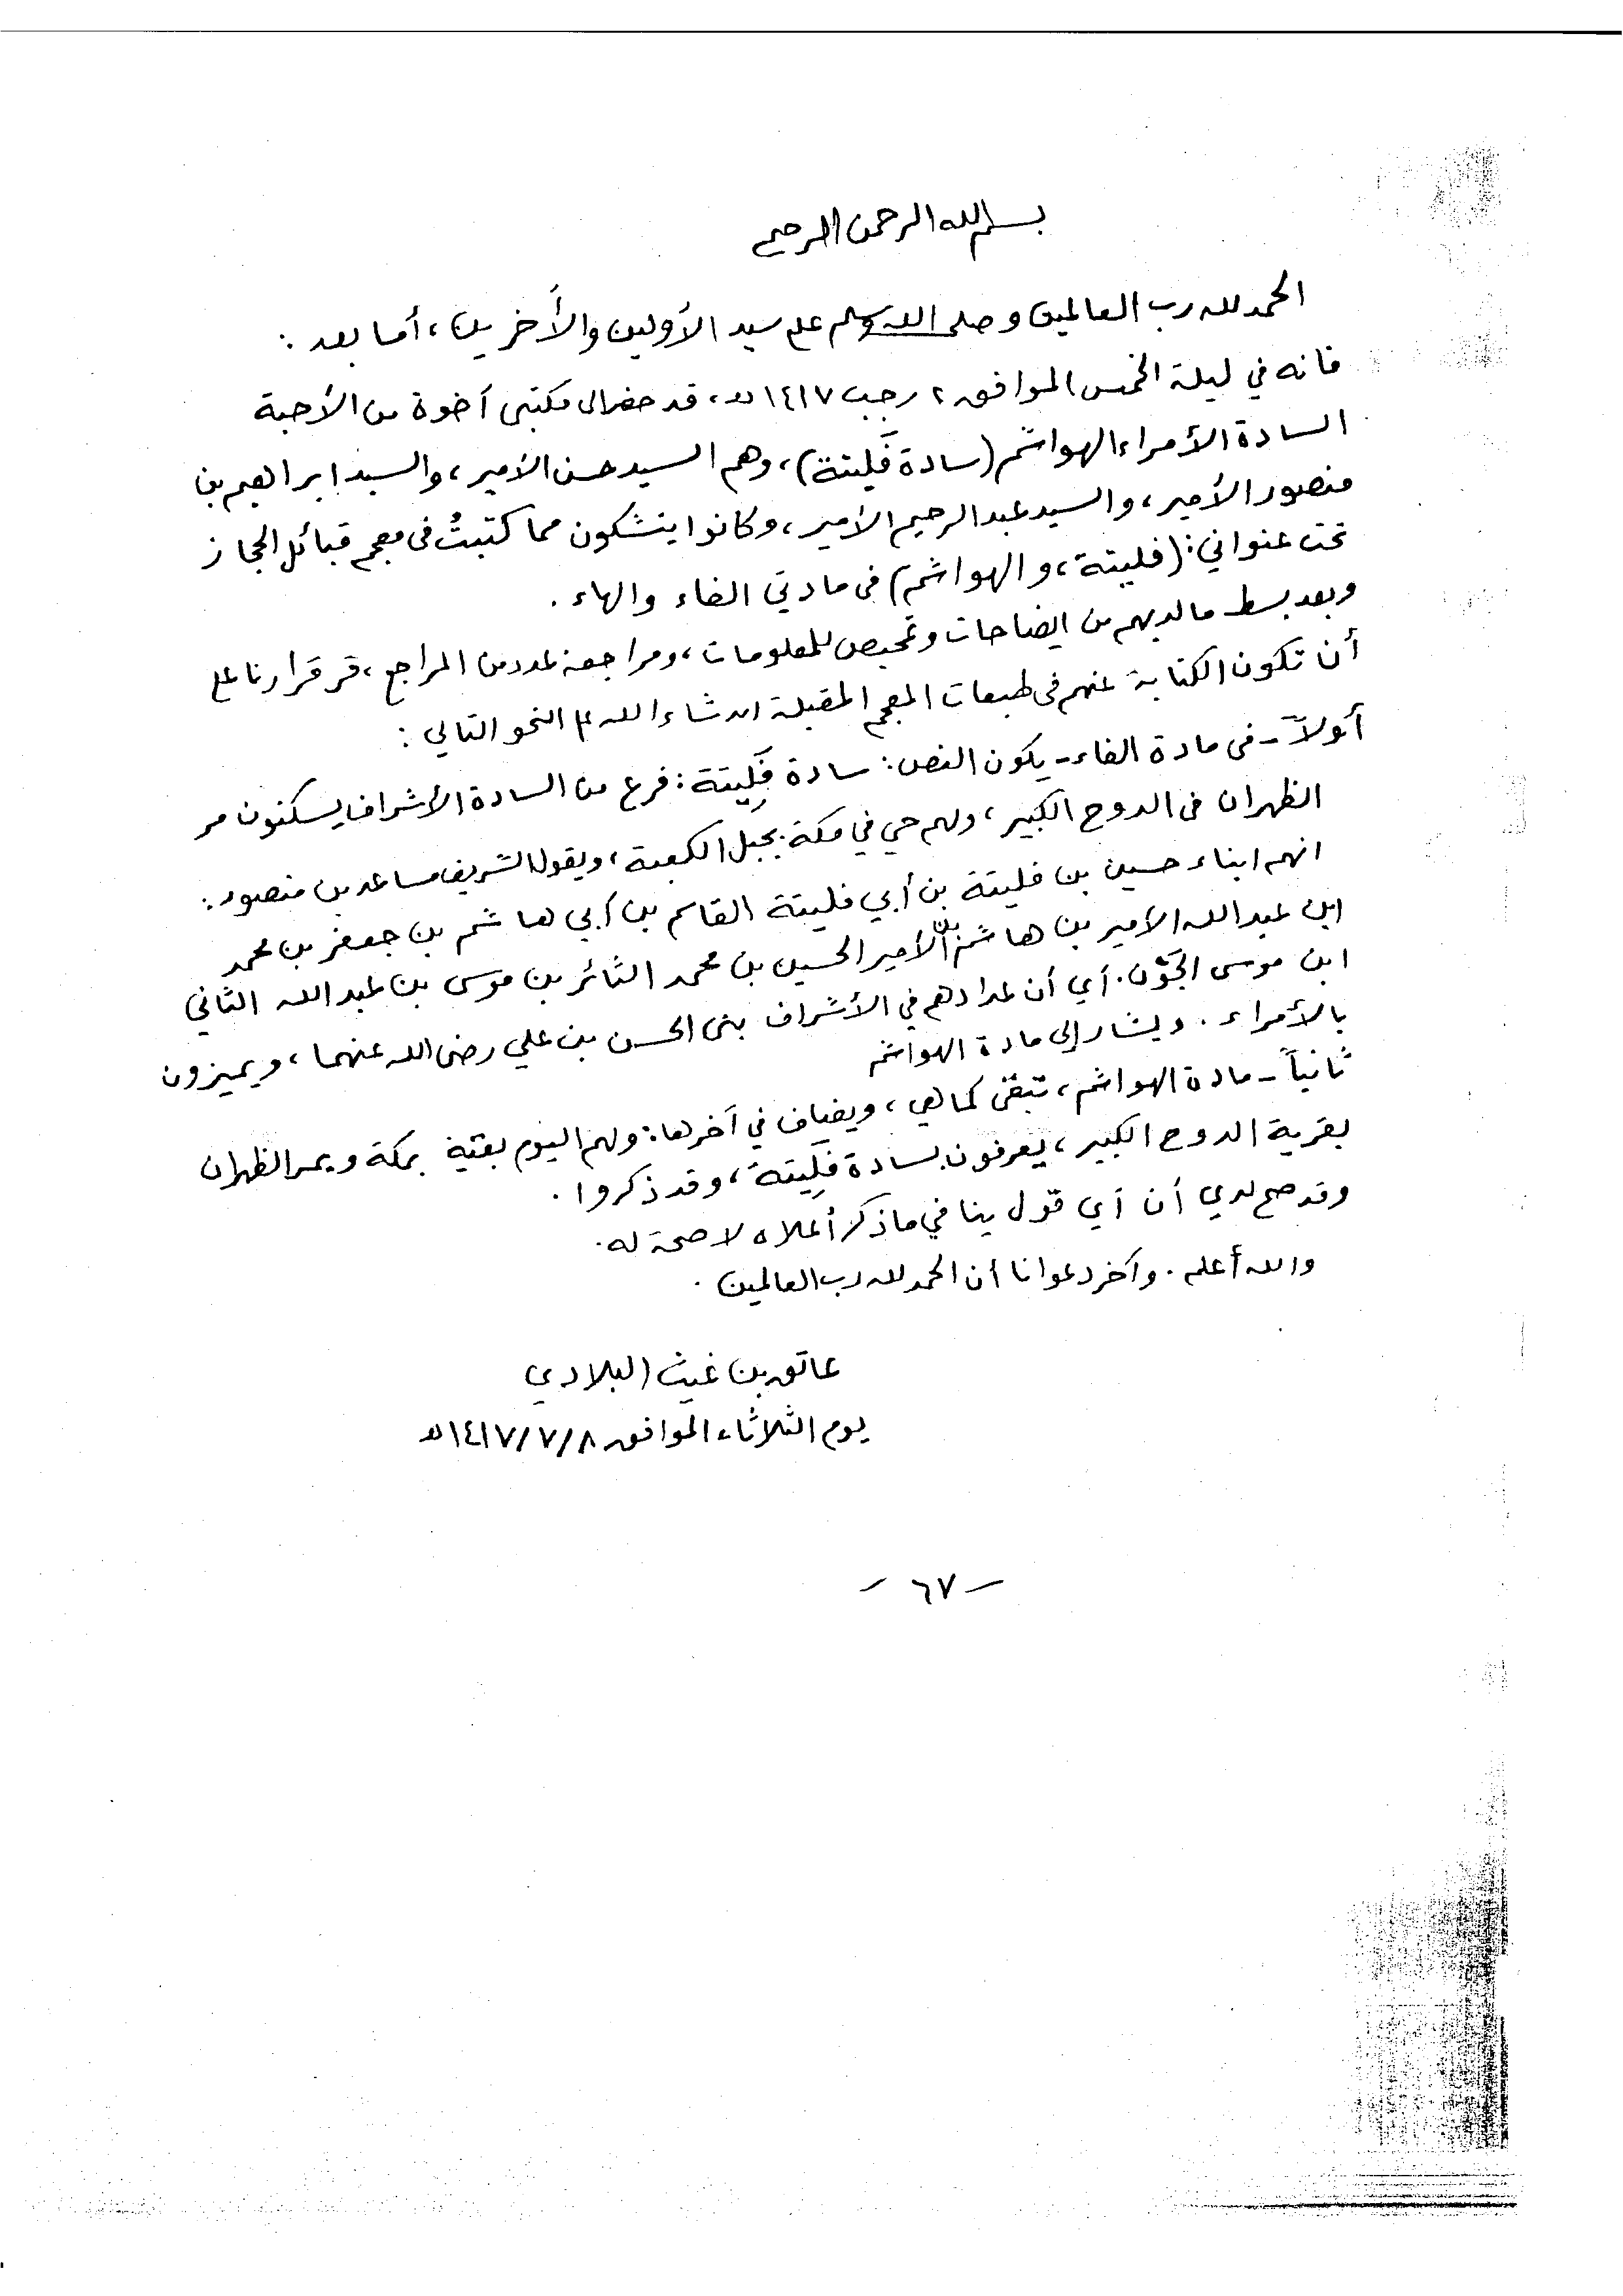 بسم الله الرحمن الرحيم
الحمد لله رب العالمين وصلى الله وسلم على سيد الأولين والأخرين، أما بعد :
فانه في ليلة الخميس الموافق ٢ رجب ١٤١٧ هـ، قد حضر الى مكتبي أخوة من الأحبة
السادة الأمراء الهواشم (سادة فَليتة)، وهم السيد حسن الأمير، والسيد ابراهيم بن
منصور الأمير، والسيد عبد الرحيم الأمير، وكانوا يتشكون مما كتبتُ في معجم قبائل الحجاز
تحت عنواني: (فليتة، والهواشم) في مادتي الفاء والهاء .
وبعد بسط ما لديهم من ايضاحات وتمحيص للمعلومات، ومراجعة عدد من المراجع، قر قرارنا على
أن تكون الكتابة عنهم في طبعات المعجم المقبلة ان شاء الله على النحو التالي :
أولاً - في مادة الفاء - يكون النص: سادة فَلِيتة: فرع من السادة الأشراف يسكنون مر
الظهران في الدوح الكبير، ولهم حي في مكة بجبل الكعبة، ويقول الشريف مساعد بن منصور:
انهم ابناء حسين بن فليتة بن أبي فليتة القاسم بن أبي هاشم بن جعفر بن محمد
ابن عبد الله الأمير بن هاشم بن الأمير الحسين بن محمد الثائر بن موسى بن عبد الله الثاني
ابن موسى الجَوْن. أي أن عدادهم في الأشراف بني الحسن بن علي رضي الله عنهما، ويميزون
بالأمراء . ويشار إلى مادة الهواشم
ثانياً - مادة الهواشم، تبقى كما هي، ويضاف في آخرها: ولهم اليوم بقية بمكة وبمر الظهران
بقرية الدوح الكبير، يعرفون بسادة فَلِيتة، وقد ذكروا .
وقد صح لدي أن أي قول ينافي ما ذكر أعلاه لا صحة له .
والله أعلم . وآخر دعوانا أن الحمد لله رب العالمين .
عاتق بن غيث البلادي
يوم الثلاثاء الموافق ١٤١٧/٧/٨ هـ
- ٦٧ -